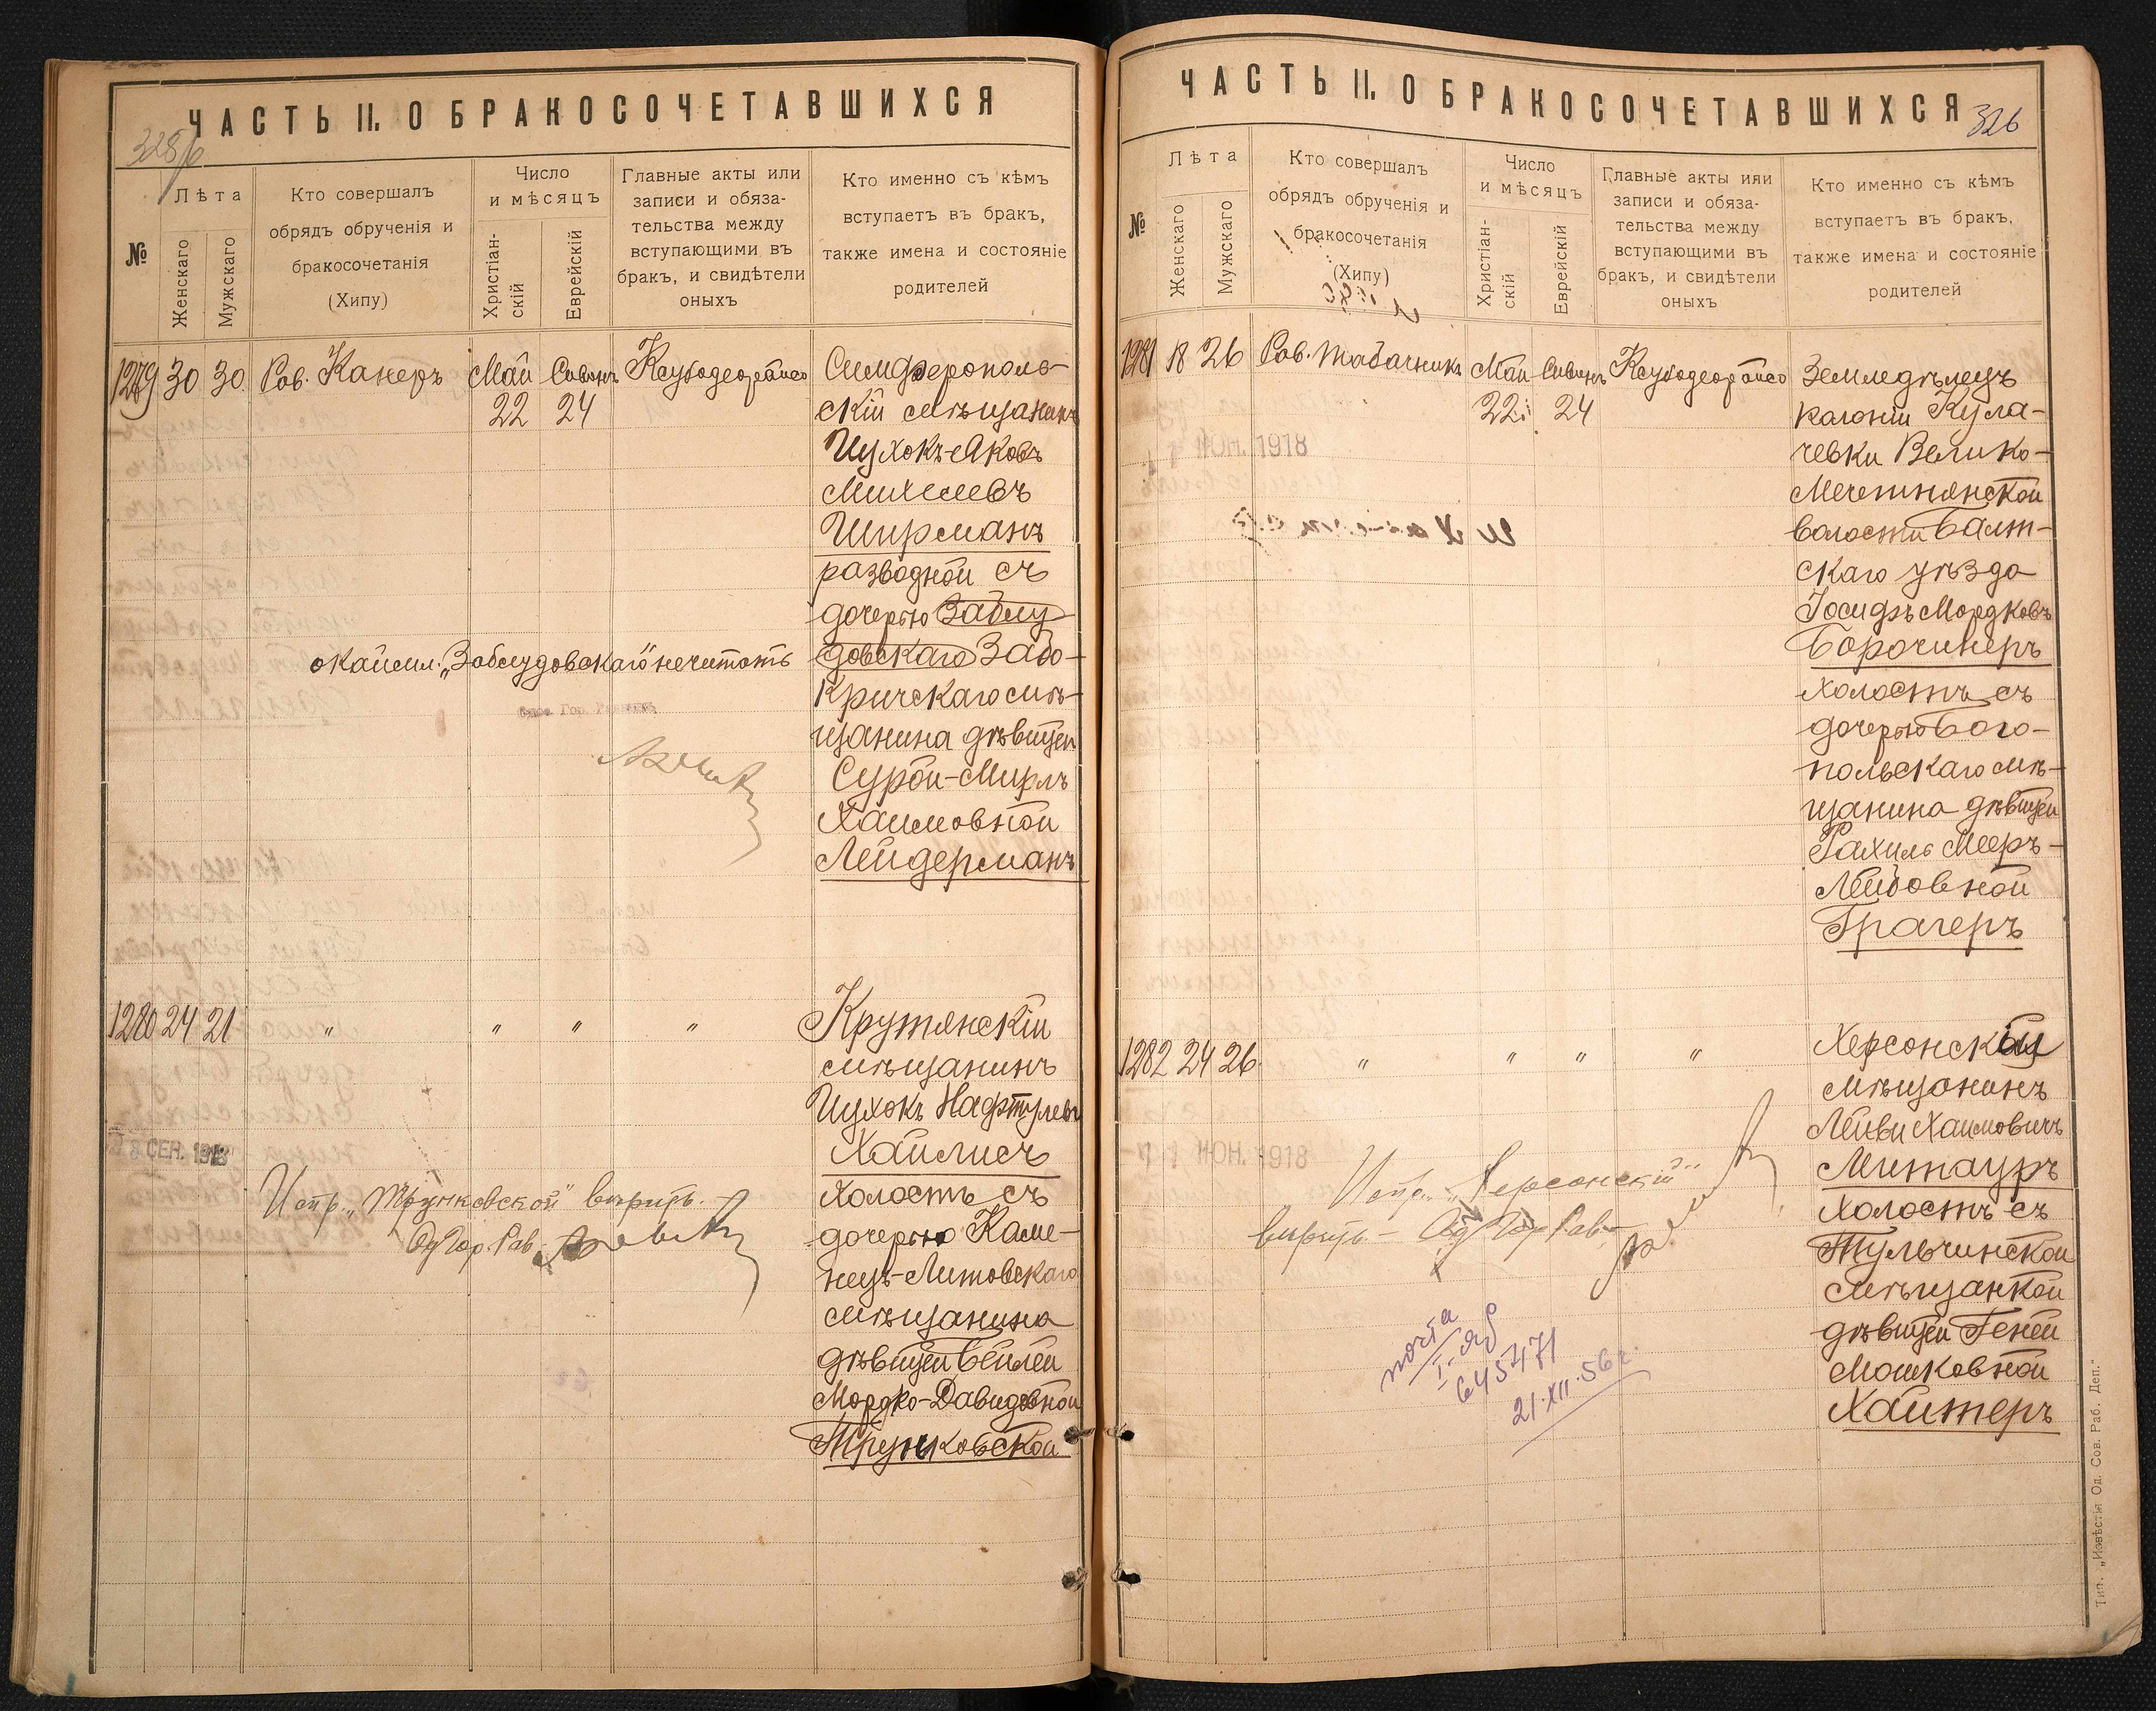 ЧАСТЬ II. О БРАКОСОЧЕТАВШИХСЯ
№
Лѣта
Женскаго
Мужскаго
Кто совершалъ
обрядъ обрученія и
бракосочетанія
(Хипу)
Число
и мѣсяцъ
Христіан-
скій
Еврейскій
Главные акты или
записи и обяза-
тельства между
вступающими въ
бракъ, и свидѣтели
оныхъ
Кто именно съ кѣмъ
вступаетъ въ бракъ,
также имена и состояніе
родителей
1279 30 30 Рав. Канеръ Май Сиванъ
22 24
Симферополь-
скій мѣщанинъ
Ицхокъ-Яковъ
Михелевъ
Ширманъ
разводной съ
дочерью Заблу-
довскаго Забо-
кричскаго мѣ-
щанина дѣвицей
Сурой-Мирлъ
Хаимовной
Лейдерманъ
окаймл. „Заблудовскаго" нечитать
1280 24 21 " " " "
Крутянскій
мѣщанинъ
Ицхокъ Нафтулевъ
Хаймисъ
холостъ съ
дочерью Каме-
нецъ-Литовскаго
мѣщанина
дѣвицей Бейлей
Мордко-Давидовной
Трунковской
СЕН. 1918
Испр. „Трунковской" вѣрить.
Од Гор. Рав.
ЧАСТЬ II. О БРАКОСОЧЕТАВШИХСЯ
326
№
Лѣта
Женскаго
Мужскаго
Кто совершалъ
обрядъ обрученія и
бракосочетанія
(Хипу)
Число
и мѣсяцъ
Христіан-
скій
Еврейскій
Главные акты или
записи и обяза-
тельства между
вступающими въ
бракъ, и свидѣтели
оныхъ
Кто именно съ кѣмъ
вступаетъ въ бракъ,
также имена и состояніе
родителей
1281 18 26 Рав. Табачникъ Май Сиванъ
22 24
Земледѣлецъ
колоніи Кула-
чевки Велико-
Мечетнянской
волости Балт-
скаго уѣзда
Іосифъ Мордковъ
Борочинеръ
холостъ съ
дочерью Бого-
польскаго мѣ-
щанина дѣвицей
Рахиль Мееръ-
Лейбовной
Трагеръ
ІЮН. 1918
1282 24 26 " " " "
Херсонскій
мѣщанинъ
Лейви Хаимовичъ
Митауръ
холостъ съ
Тульчинской
мѣщанкой
дѣвицей Геней
Мошковной
Хайтеръ
11 ІЮН. 1918
Испр. „Херсонскій"
вѣрить – Од Гор Рав
почта
645471
21.XII.56г.
Тип. „Извѣстія Од. Сов. Раб. Деп."